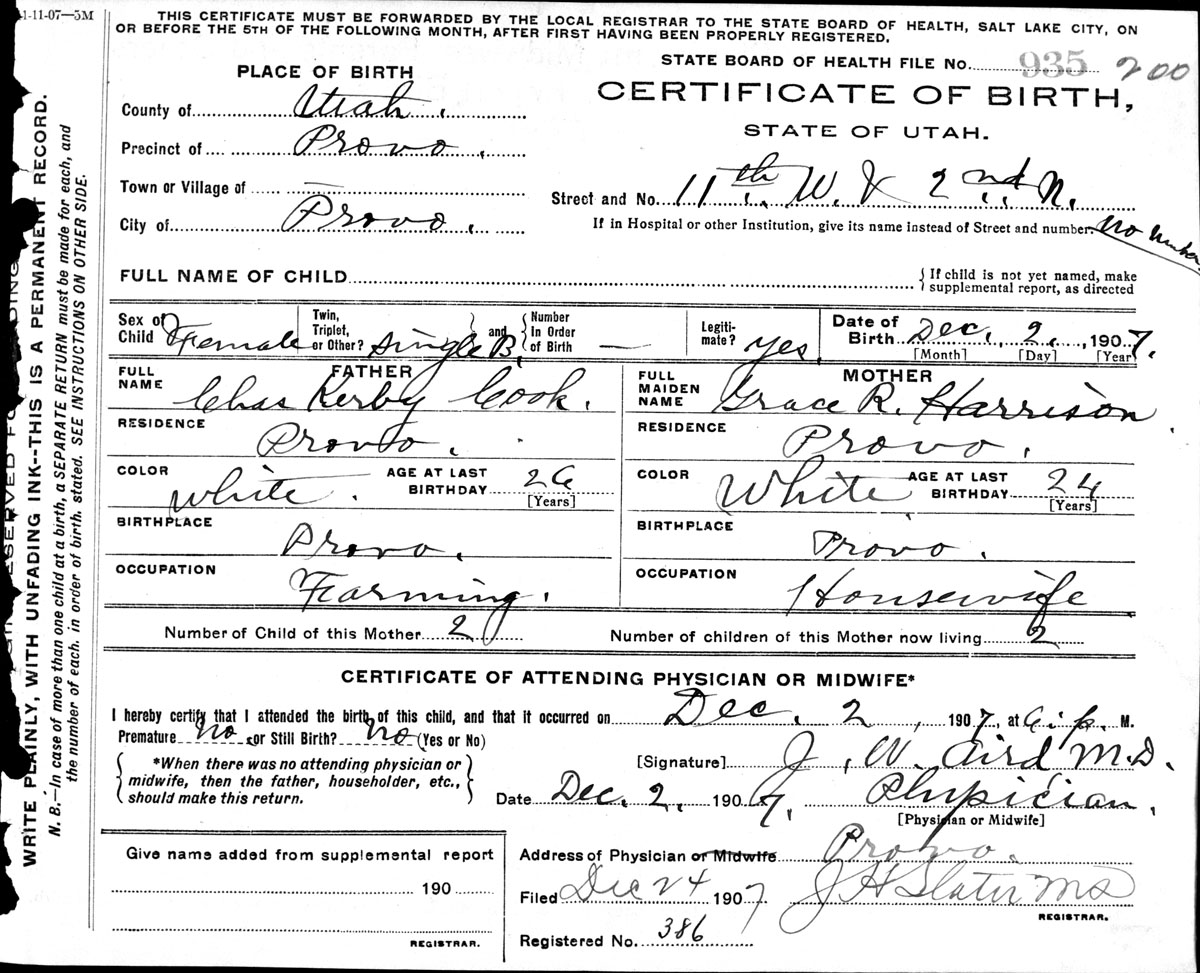 1-11-07—5M
THIS CERTIFICATE MUST BE FORWARDED BY THE LOCAL REGISTRAR TO THE STATE BOARD OF HEALTH, SALT LAKE CITY, ON
OR BEFORE THE 5TH OF THE FOLLOWING MONTH, AFTER FIRST HAVING BEEN PROPERLY REGISTERED.
STATE BOARD OF HEALTH FILE No. 935 200
PLACE OF BIRTH
CERTIFICATE OF BIRTH,
STATE OF UTAH.
County of Utah.
Precinct of Provo.
Town or Village of —
City of Provo.
Street and No. 11th. W. & 2nd. N.
If in Hospital or other Institution, give its name instead of Street and number. No number
FULL NAME OF CHILD
{ If child is not yet named, make
supplemental report, as directed
Sex of Child Female
Twin, Triplet, or Other? Single B. } and { Number In Order of Birth —
Legiti- mate? yes.
Date of Birth Dec., 2., 1907.
[Month] [Day] [Year]
FATHER
FULL NAME Chas Kerby Cook.
RESIDENCE Provo.
COLOR White. AGE AT LAST BIRTHDAY 26
[Years]
BIRTHPLACE Provo.
OCCUPATION Farming.
MOTHER
FULL MAIDEN NAME Grace R. Harrison.
RESIDENCE Provo.
COLOR White AGE AT LAST BIRTHDAY 24
[Years]
BIRTHPLACE Provo.
OCCUPATION Housewife
Number of Child of this Mother 2
Number of children of this Mother now living 2
CERTIFICATE OF ATTENDING PHYSICIAN OR MIDWIFE*
I hereby certify that I attended the birth of this child, and that it occurred on Dec. 2, 1907, at 6 p. M.
Premature No, or Still Birth? No (Yes or No)
{ *When there was no attending physician or
midwife, then the father, householder, etc.,
should make this return. }
[Signature] J. W. Aird M.D.
Date Dec. 2. 1907. Physician.
[Physician or Midwife]
Address of Physician or Midwife Provo.
Filed Dec 24 1907 J H Slater MD
REGISTRAR.
Registered No. 386
Give name added from supplemental report
190
REGISTRAR.
WRITE PLAINLY, WITH UNFADING INK--THIS IS A PERMANENT RECORD.
N. B.—In case of more than one child at a birth, a SEPARATE RETURN must be made for each, and
the number of each, in order of birth, stated. SEE INSTRUCTIONS ON OTHER SIDE.